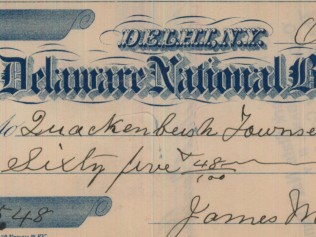 DELHI, N.Y.
Delaware National B
to Quackenbush Townse
Sixty five & 48/100
548
James M